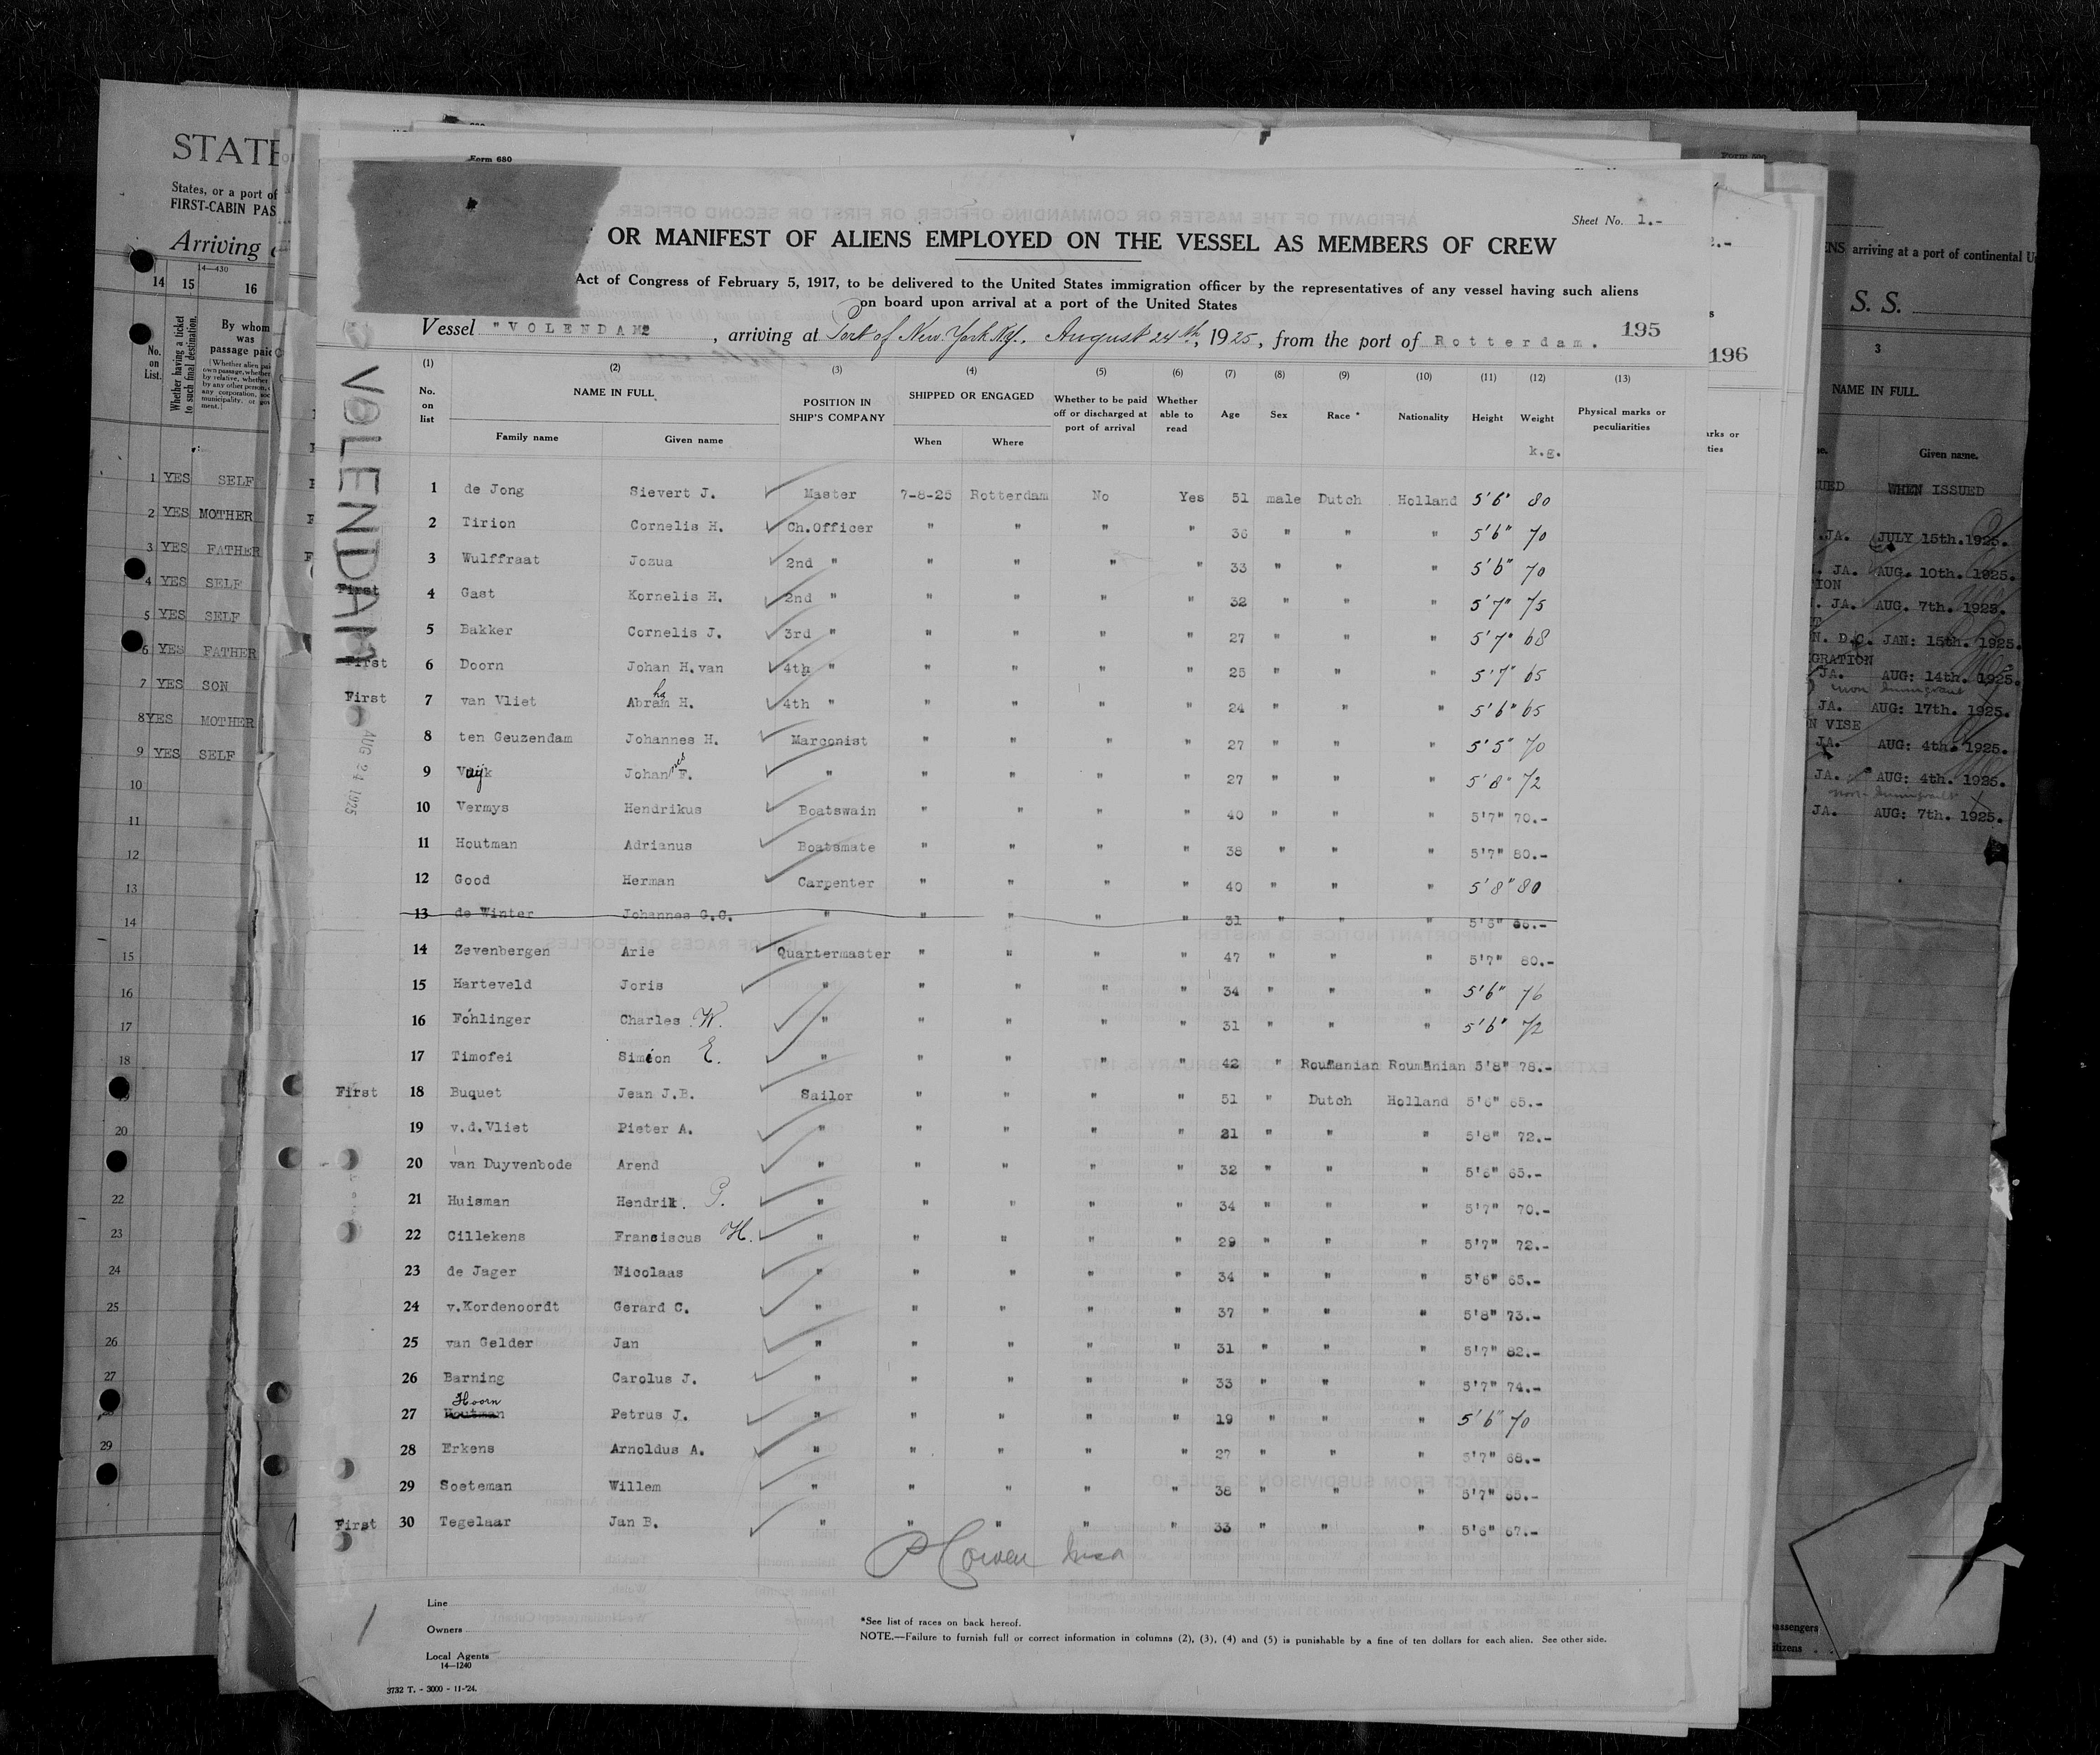 STATE
States, or a port of
FIRST-CABIN PAS
Arriving
14—430
14 15 16
No. on List.
Whether having a ticket to such final destination.
By whom was passage paid
1 YES SELF
2 YES MOTHER
3 YES FATHER
4 YES SELF
5 YES SELF
6 YES FATHER
7 YES SON
8 YES MOTHER
9 YES SELF
10
11
12
13
14
15
16
17
18
20
22
23
24
25
26
27
29
Form 680
Sheet No. 1.-
OR MANIFEST OF ALIENS EMPLOYED ON THE VESSEL AS MEMBERS OF CREW
Act of Congress of February 5, 1917, to be delivered to the United States immigration officer by the representatives of any vessel having such aliens
on board upon arrival at a port of the United States
195
Vessel "VOLENDAM", arriving at Port of New York N.Y., August 24th, 1925, from the port of Rotterdam.
VOLENDAM
AUG 24 1925
(1) (2) (3) (4) (5) (6) (7) (8) (9) (10) (11) (12) (13)
No. on list
NAME IN FULL
Family name Given name
POSITION IN SHIP'S COMPANY
SHIPPED OR ENGAGED
When Where
Whether to be paid off or discharged at port of arrival
Whether able to read
Age Sex Race * Nationality Height Weight
k.g.
Physical marks or peculiarities
1 de Jong Sievert J. Master 7-8-25 Rotterdam No Yes 51 male Dutch Holland 5'6" 80
2 Tirion Cornelis H. Ch.Officer " " " " 36 " " " 5'6" 70
3 Wulffraat Jozua 2nd " " " " " 33 " " " 5'6" 70
First 4 Gast Kornelis H. 2nd " " " " " 32 " " " 5'7" 75
5 Bakker Cornelis J. 3rd " " " " " 27 " " " 5'7" 68
First 6 Doorn Johan H.van 4th " " " " " 25 " " " 5'7" 65
First 7 van Vliet Abraham H. 4th " " " " " 24 " " " 5'6" 65
8 ten Geuzendam Johannes H. Marconist " " " " 27 " " " 5'5" 70
9 Johannes F. " " " " " 27 " " " 5'8" 72
10 Vermys Hendrikus Boatswain " " " " 40 " " " 5'7" 70.-
11 Houtman Adrianus Boatsmate " " " " 38 " " " 5'7" 80.-
12 Good Herman Carpenter " " " " 40 " " " 5'8" 80
13 de Winter Johannes G.C. " " " " " 31 " " " 5'6" 66.-
14 Zevenbergen Arie Quartermaster " " " " 47 " " " 5'7" 80.-
15 Harteveld Joris " " " " " 34 " " " 5'6" 76
16 Föhlinger Charles W. " " " " " 31 " " " 5'6" 72
17 Timofei Simion E. " " " " " 42 " Roumanian Roumanian 5'8" 78.-
First 18 Buquet Jean J.B. Sailor " " " " 51 " Dutch Holland 5'6" 65.-
19 v.d.Vliet Pieter A. " " " " " 21 " " " 5'8" 72.-
20 van Duyvenbode Arend " " " " " 32 " " " 5'6" 65.-
21 Huisman Hendrik. P. " " " " " 34 " " " 5'7" 70.-
22 Cillekens Fransiscus H. " " " " " 29 " " " 5'7" 72.-
23 de Jager Nicolaas " " " " " 34 " " " 5'6" 65.-
24 v.Kordenoordt Gerard C. " " " " " 37 " " " 5'8" 73.-
25 van Gelder Jan " " " " " 31 " " " 5'7" 82.-
26 Barning Carolus J. " " " " " 33 " " " 5'7" 74.-
Hoorn
27 Houtman Petrus J. " " " " " 19 " " " 5'6" 70
28 Erkens Arnoldus A. " " " " " 27 " " " 5'7" 68.-
29 Soeteman Willem " " " " " 38 " " " 5'7" 65.-
First 30 Tegelaar Jan B. " " " " " 33 " " " 5'6" 67.-
Line
Owners
Local Agents
14—1240
*See list of races on back hereof.
NOTE.—Failure to furnish full or correct information in columns (2), (3), (4) and (5) is punishable by a fine of ten dollars for each alien. See other side.
3732 T. - 3000 - 11-'24.
196
arriving at a port of continental
S. S.
3
NAME IN FULL.
Given name.
WHEN ISSUED
JA. JULY 15th.1925.
JA. AUG. 10th. 1925.
JA. AUG. 7th. 1925.
N. D.C. JAN: 15th. 1925.
JA. AUG: 14th. 1925.
non immigrant
JA. AUG: 17th. 1925.
N VISE
JA. AUG: 4th. 1925.
JA. AUG: 4th. 1925.
non-immigrant
JA. AUG: 7th. 1925.